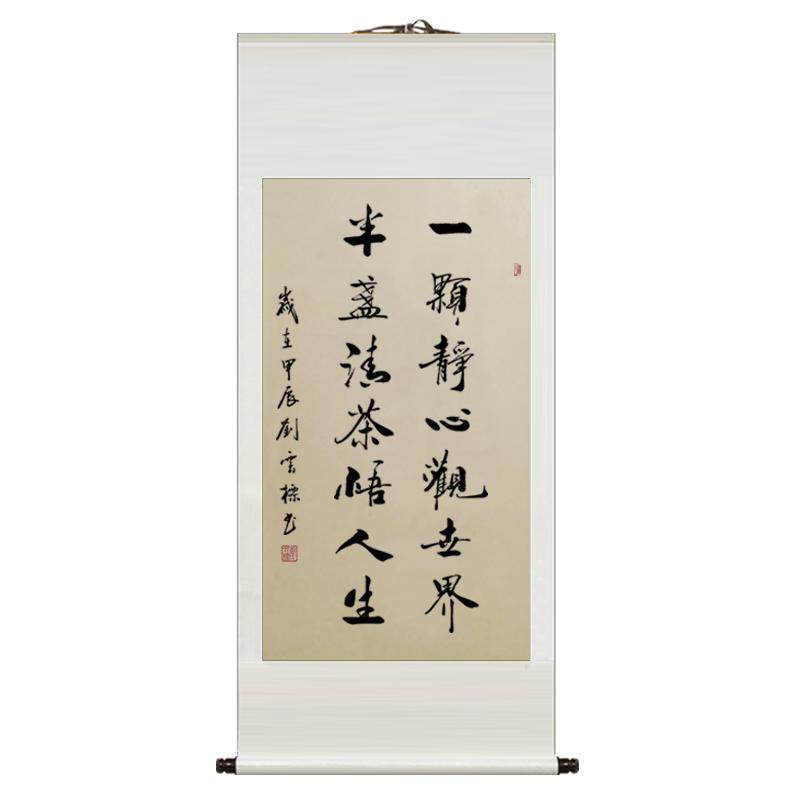 一顆靜心觀世界
半盞清茶悟人生
歲在甲辰劉雲標書